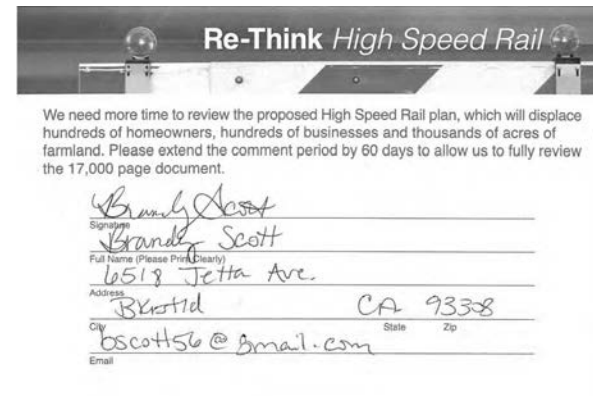 Re-Think High Speed Rail
We need more time to review the proposed High Speed Rail plan, which will displace
hundreds of homeowners, hundreds of businesses and thousands of acres of
farmland. Please extend the comment period by 60 days to allow us to fully review
the 17,000 page document.
Brandy Scott
Signature
Brandy Scott
Full Name (Please Print Clearly)
6518 Jetta Ave.
Address
Bkrsfld CA 93308
City State Zip
bscott56@gmail.com
Email